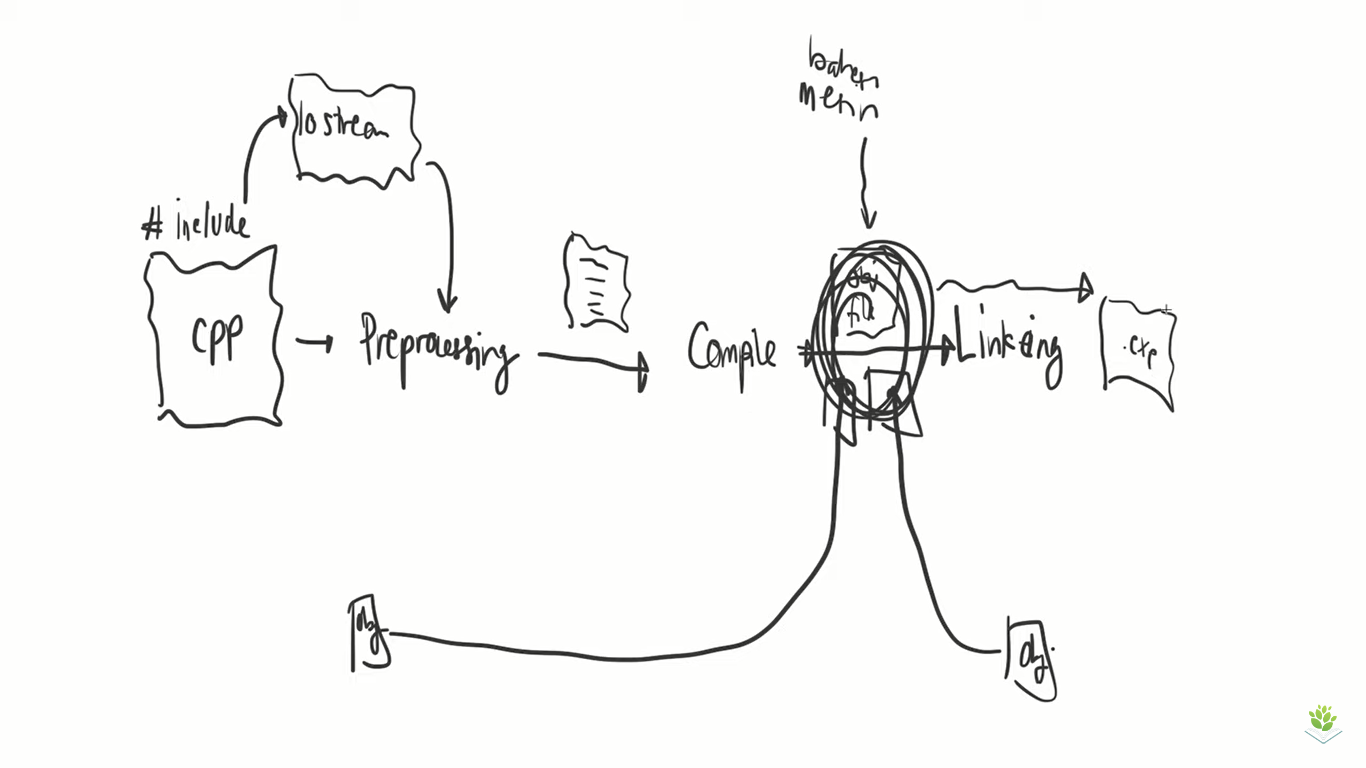 bahasa
mesin
Iostream
# include
cpp
Preprocessing
Compile
obj
file
Linking
.exe
obj
obj